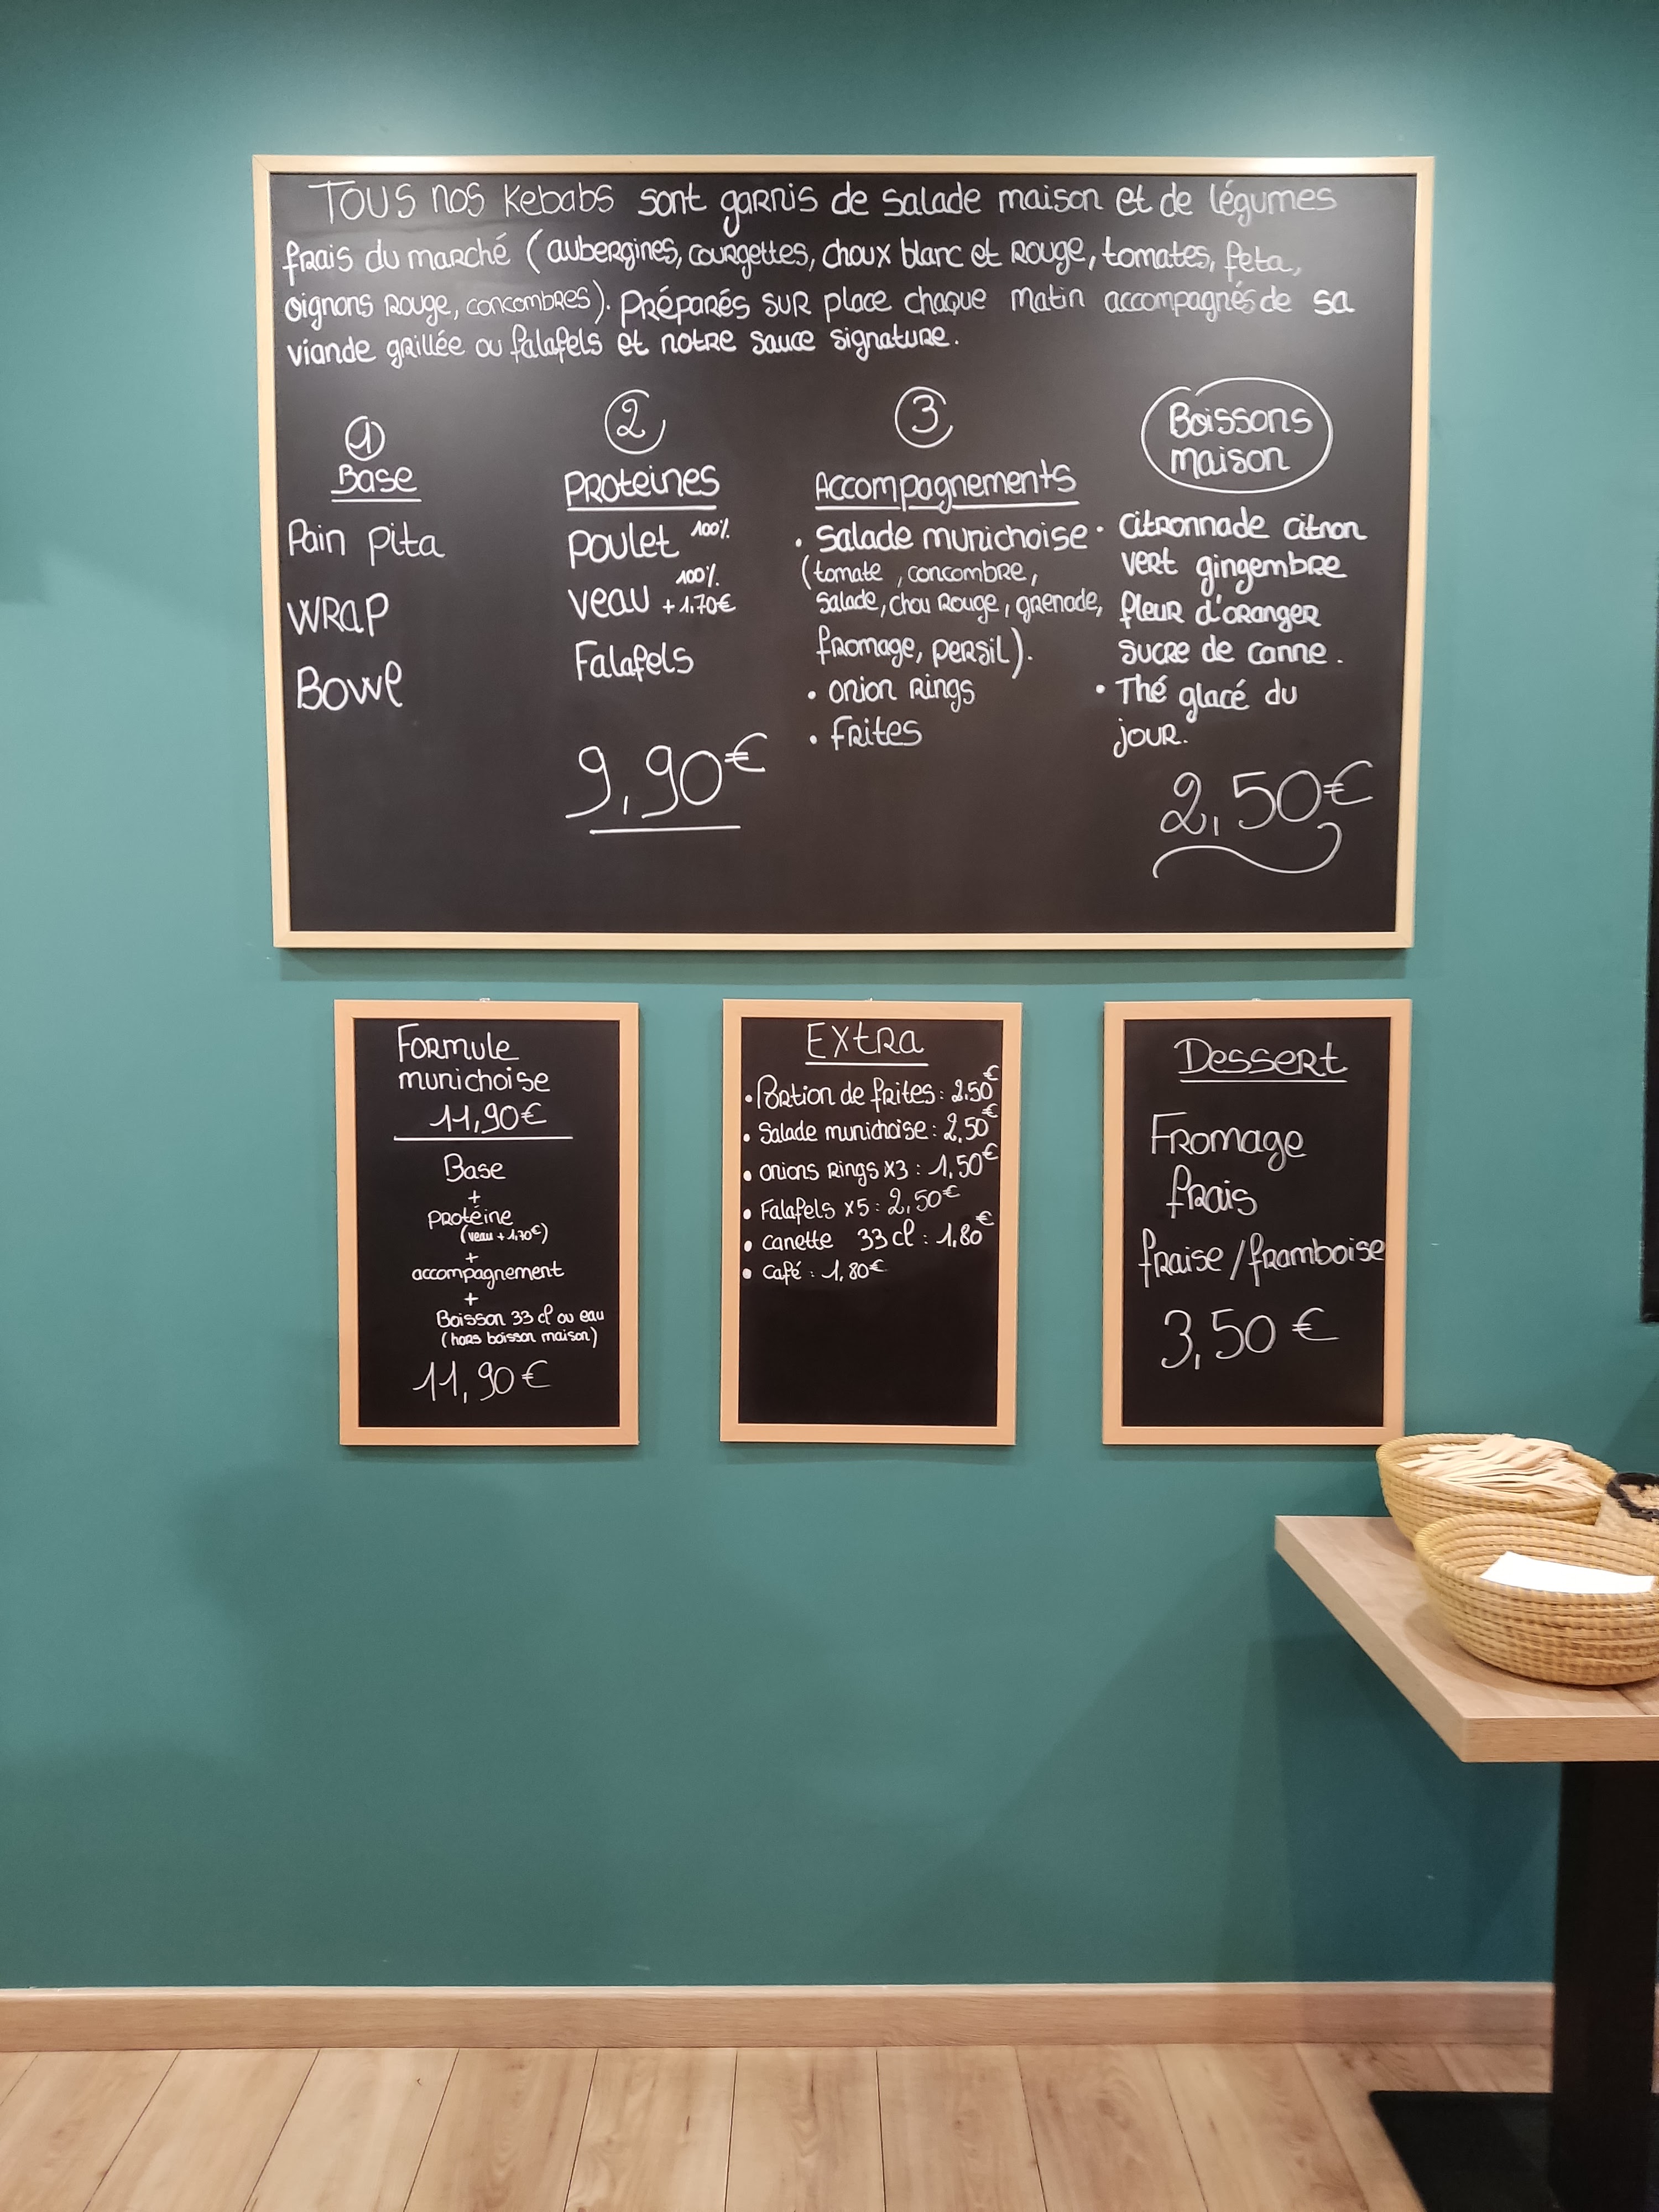 Tous nos Kebabs sont garnis de salade maison et de légumes
frais du marché (aubergines, courgettes, choux blanc et rouge, tomates, feta,
oignons rouge, concombres). Préparés sur place chaque matin accompagnés de sa
viande grillée ou falafels et notre sauce signature.
1
Base
Pain pita
Wrap
Bowl
2
Proteines
Poulet 100%
Veau 100% +1,70€
Falafels
9,90€
3
Accompagnements
• Salade munichoise
(tomate, concombre,
salade, chou rouge, grenade,
fromage, persil).
• onion rings
• Frites
Boissons
maison
• Citronnade citron
vert gingembre
fleur d'oranger
sucre de canne.
• Thé glacé du
jour.
2,50€
Formule
munichoise
11,90€
Base
+
Protéine
(veau +1,70€)
+
accompagnement
+
Boisson 33 cl ou eau
(hors boisson maison)
11,90€
Extra
• Portion de frites : 2,50€
• Salade munichoise : 2,50€
• onions rings x3 : 1,50€
• Falafels x5 : 2,50€
• canette 33 cl : 1,80€
• café : 1,80€
Dessert
Fromage
frais
fraise/framboise
3,50€